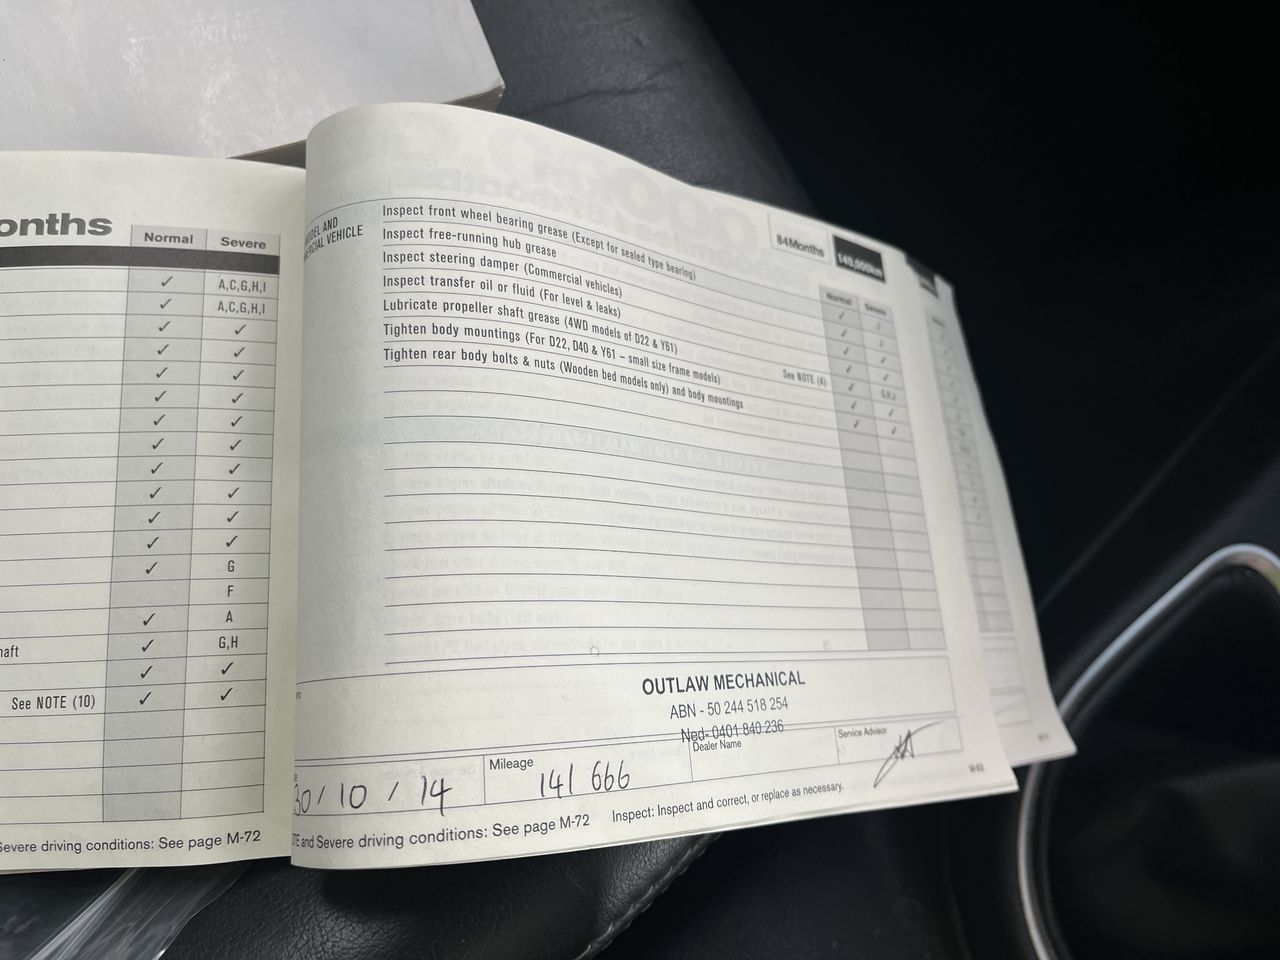 onths
Normal Severe
✓ A,C,G,H,I
✓ A,C,G,H,I
✓ ✓
✓ ✓
✓ ✓
✓ ✓
✓ ✓
✓ ✓
✓ ✓
✓ ✓
✓ ✓
✓ ✓
✓ G
F
✓ A
haft ✓ G,H
✓ ✓
See NOTE (10) ✓ ✓
Severe driving conditions: See page M-72
84Months 140,000km
Normal Severe
MODEL AND
COMMERCIAL VEHICLE
Inspect front wheel bearing grease (Except for sealed type bearing)
Inspect free-running hub grease
Inspect steering damper (Commercial vehicles)
Inspect transfer oil or fluid (For level & leaks)
Lubricate propeller shaft grease (4WD models of D22 & Y61)
Tighten body mountings (For D22, D40 & Y61 – small size frame models) See NOTE (4)
Tighten rear body bolts & nuts (Wooden bed models only) and body mountings
OUTLAW MECHANICAL
ABN - 50 244 518 254
Ned- 0401 840 236
30 / 10 / 14
Mileage
141 666
Dealer Name
Service Advisor
TE and Severe driving conditions: See page M-72
Inspect: Inspect and correct, or replace as necessary.